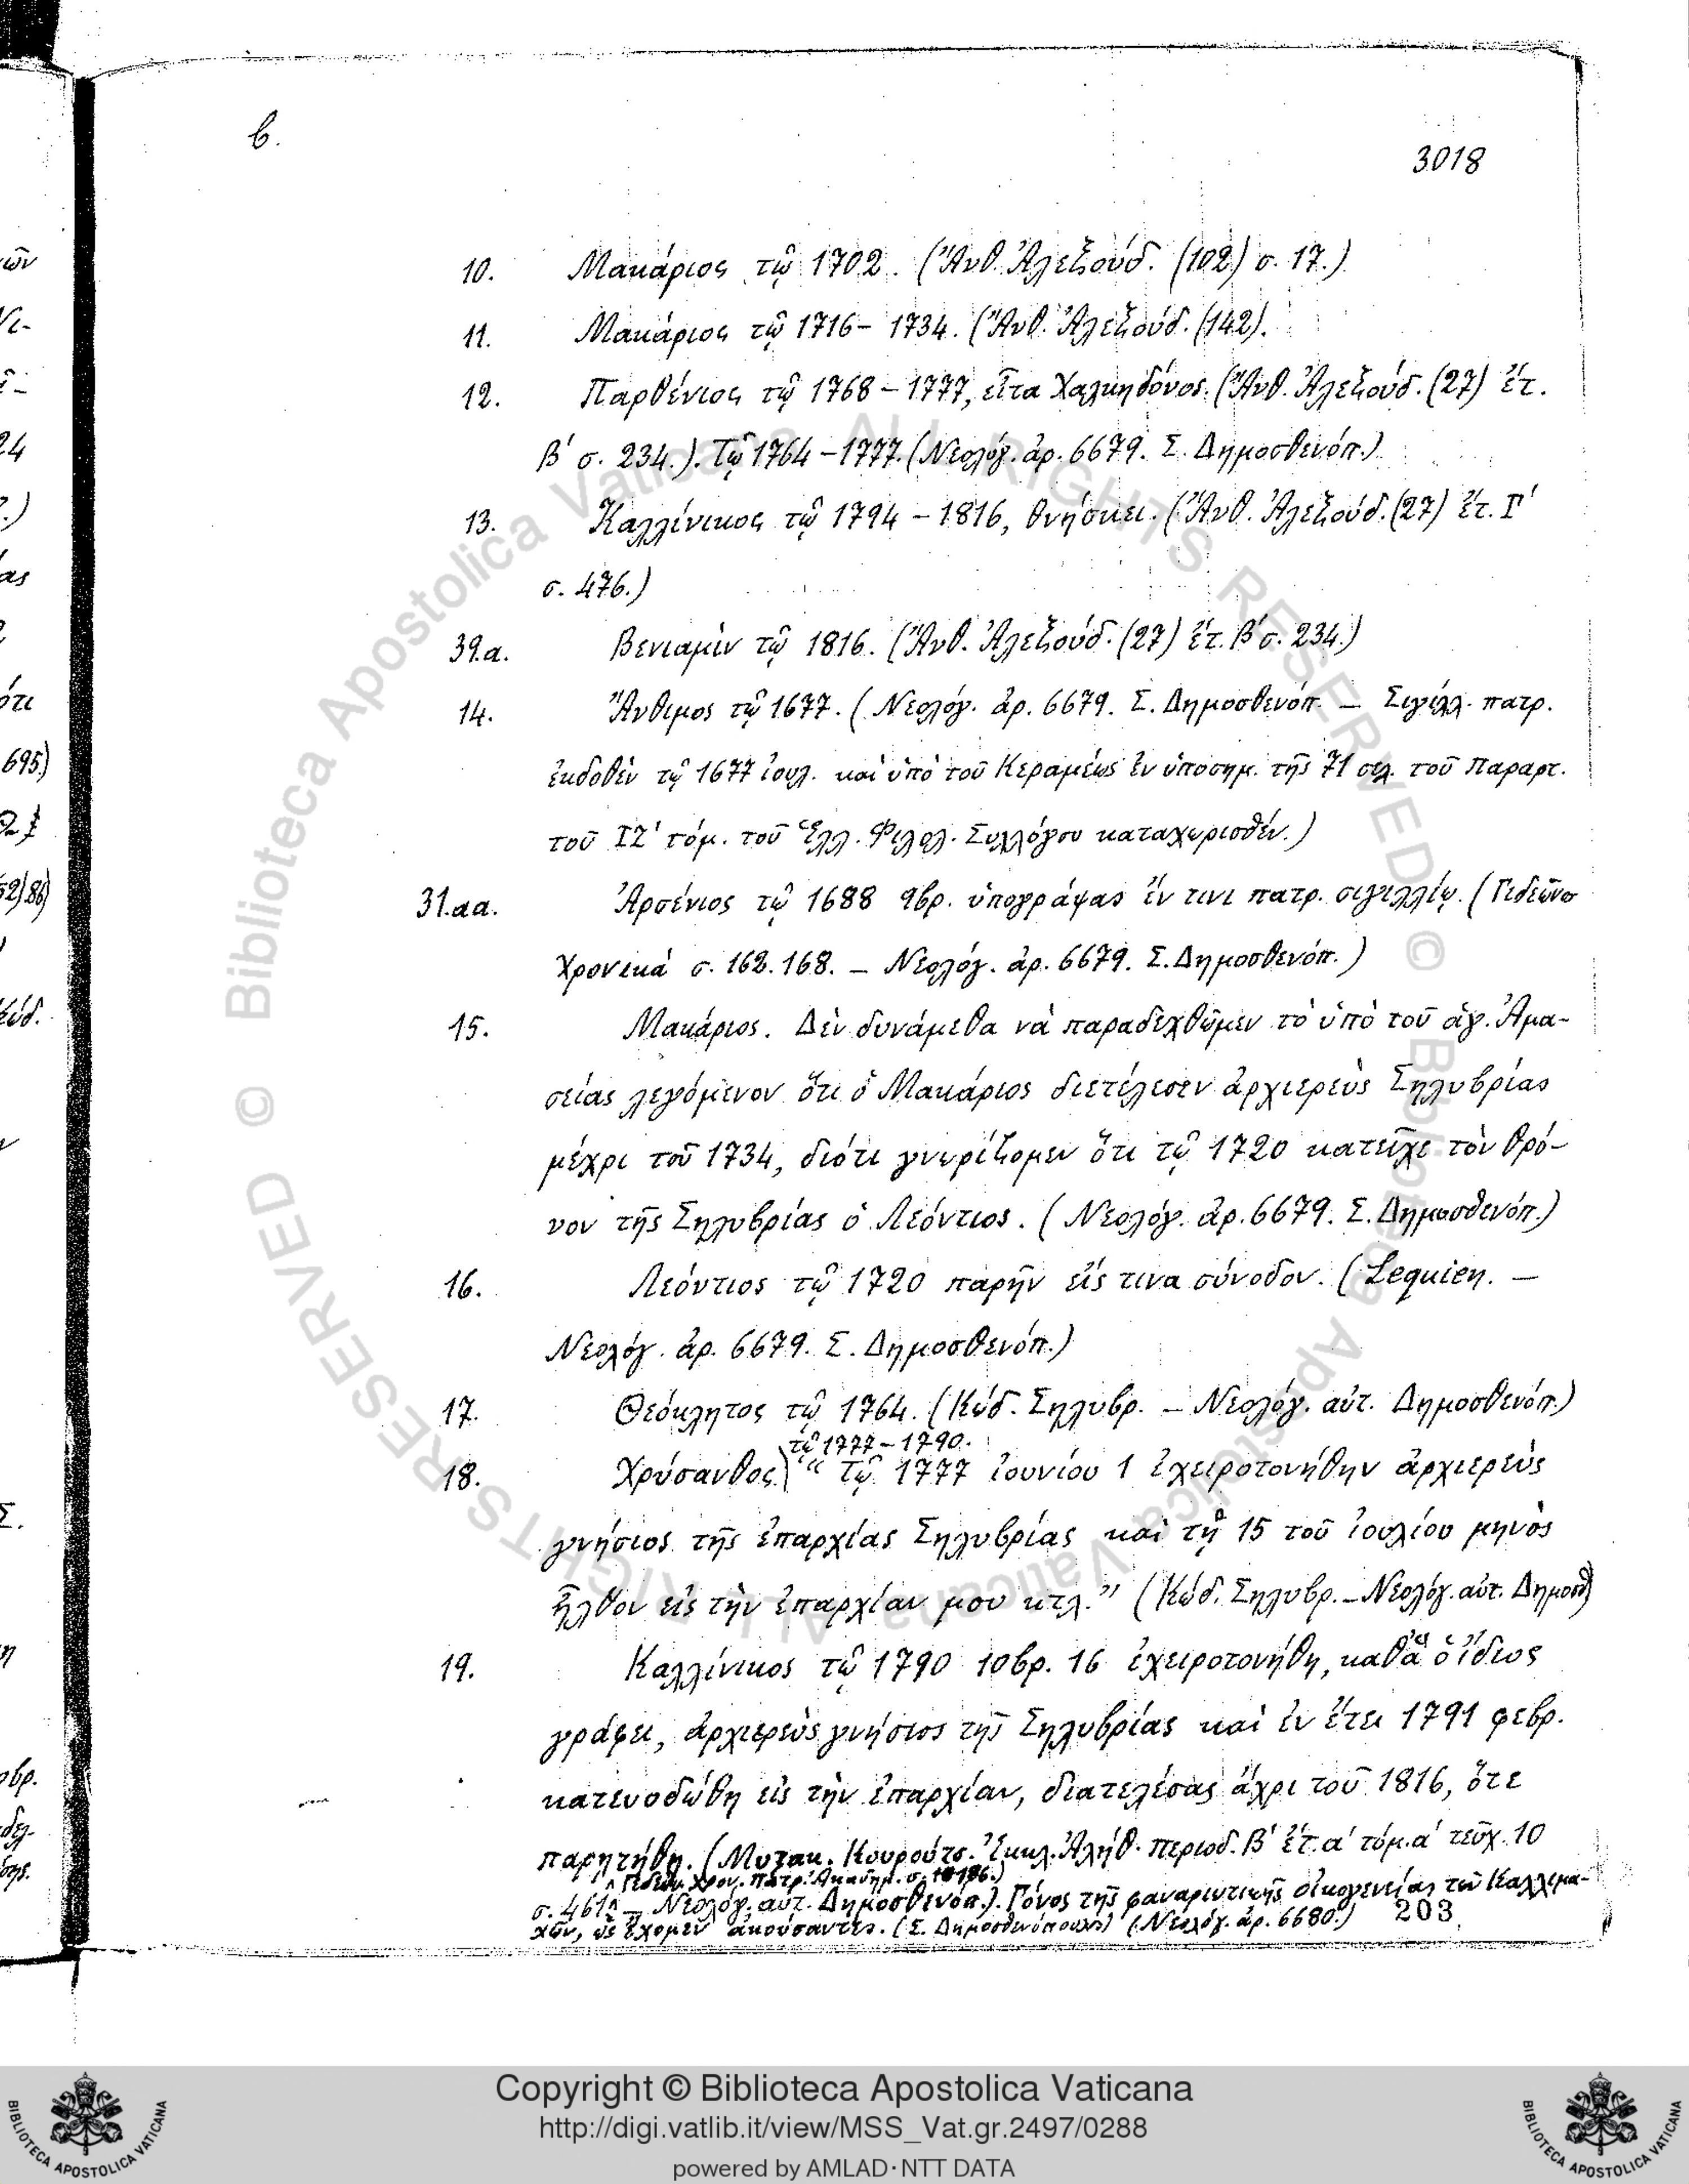 6.
3018
10. Μακάριος τῷ 1702. (Ἀνθ. Ἀλεξούδ. (102) σ. 17.)
11. Μακάριος τῷ 1716 – 1734. (Ἀνθ. Ἀλεξούδ. (142).
12. Παρθένιος τῷ 1768 – 1777, εἶτα Χαλκηδόνος. (Ἀνθ. Ἀλεξούδ. (27) ἔτ.
Β' σ. 234.). Τῷ 1764 – 1777. (Νεολόγ. ἀρ. 6679. Σ. Δημοσθενόπ.)
13. Καλλίνικος τῷ 1794 – 1816, θνήσκει. (Ἀνθ. Ἀλεξούδ. (27) ἔτ. Γ'
σ. 476.)
39.α. Βενιαμὶν τῷ 1816. (Ἀνθ. Ἀλεξούδ. (27) ἔτ. Β' σ. 234.)
14. Ἄνθιμος τῷ 1677. (Νεολόγ. ἀρ. 6679. Σ. Δημοσθενόπ. – Σιγίλλ. πατρ.
ἐκδοθὲν τῷ 1677 ἰουλ. καὶ ὑπὸ τοῦ Κεραμέως ἐν ὑποσημ. τῆς 71 σελ. τοῦ παραρτ.
τοῦ ΙΖ' τόμ. τοῦ Ἑλλ. Φιλολ. Συλλόγου καταχωρισθέν.)
31.αα. Ἀρσένιος τῷ 1688 9βρ. ὑπογράψας ἔν τινι πατρ. σιγιλλίῳ. (Γεδεὼν
Χρονικά σ. 162. 168. – Νεολόγ. ἀρ. 6679. Σ. Δημοσθενόπ.)
15. Μακάριος. Δὲν δυνάμεθα νὰ παραδεχθῶμεν τὸ ὑπὸ τοῦ ἁγ. Ἀμα-
σείας λεγόμενον ὅτι ὁ Μακάριος διετέλεσεν ἀρχιερεὺς Σηλυβρίας
μέχρι τοῦ 1734, διότι γνωρίζομεν ὅτι τῷ 1720 κατεῖχε τὸν θρό-
νον τῆς Σηλυβρίας ὁ Λεόντιος. (Νεολόγ. ἀρ. 6679. Σ. Δημοσθενόπ.)
16. Λεόντιος τῷ 1720 παρῆν εἴς τινα σύνοδον. (Lequien. –
Νεολόγ. ἀρ. 6679. Σ. Δημοσθενόπ.)
17. Θεόκλητος τῷ 1764. (Κώδ. Σηλυβρ. – Νεολόγ. αὐτ. Δημοσθενόπ.)
τῷ 1777 – 1790.
18. Χρύσανθος) “ Τῷ 1777 ἰουνίου 1 ἐχειροτονήθην ἀρχιερεὺς
γνήσιος τῆς ἐπαρχίας Σηλυβρίας καὶ τῇ 15 τοῦ ἰουλίου μηνὸς
ἦλθον εἰς τὴν ἐπαρχίαν μου κτλ.” (Κώδ. Σηλυβρ. – Νεολόγ. αὐτ. Δημοσθ)
19. Καλλίνικος τῷ 1790 10βρ. 16 ἐχειροτονήθη, καθὰ ὁ ἴδιος
γράφει, ἀρχιερεὺς γνήσιος τῆς Σηλυβρίας καὶ ἐν ἔτει 1791 φεβρ.
κατευοδώθη εἰς τὴν ἐπαρχίαν, διατελέσας ἄχρι τοῦ 1816, ὅτε
παρῃτήθη. (Μυτακ. Κουρούτσ. Ἐκκλ. Ἀλήθ. περιοδ. Β' ἔτ. α' τόμ. α' τεῦχ. 10
Γεδεὼν Χρον. πατρ. Ἀκαδημ. σ. 186.)
σ. 461 – Νεολόγ. αὐτ. Δημοσθενόπ.). Γόνος τῆς φαναριωτικῆς οἰκογενείας τῶν Καλλιμα-
χῶν, ὡς ἔχομεν ἀκούσαντες. (Σ. Δημοσθενόπουλος) (Νεολόγ. ἀρ. 6680.) 203
Copyright © Biblioteca Apostolica Vaticana
http://digi.vatlib.it/view/MSS_Vat.gr.2497/0288
powered by AMLAD·NTT DATA